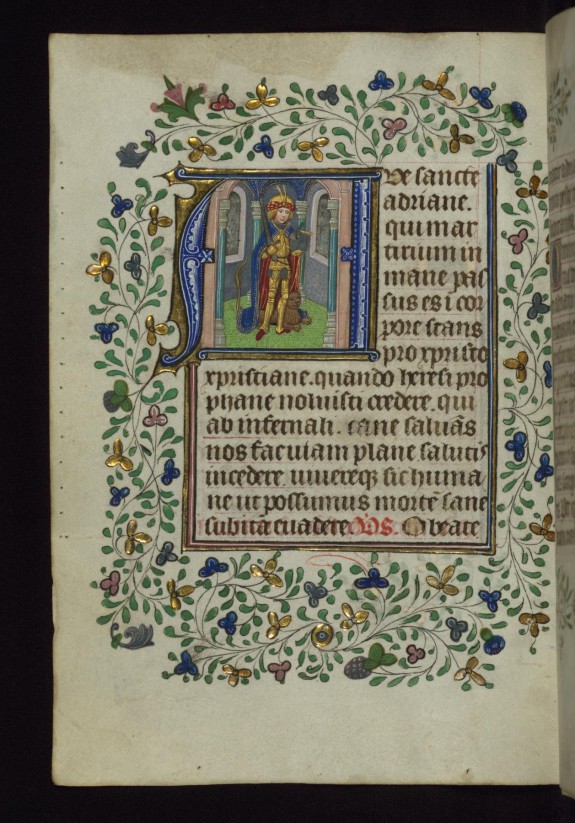 Ave sancte
adriane.
qui mar
tirium in
mane pas
sus es i cor
pore stans
pro xpristo
xpristiane. quando heresi pro
phane noluisti credere. qui
ab infernali. sane saluãs
nos fac uiam plane salutis
incedere. uiuereqꝫ sic huma
ne ut possumus mortẽ sane
subita euadere O beate